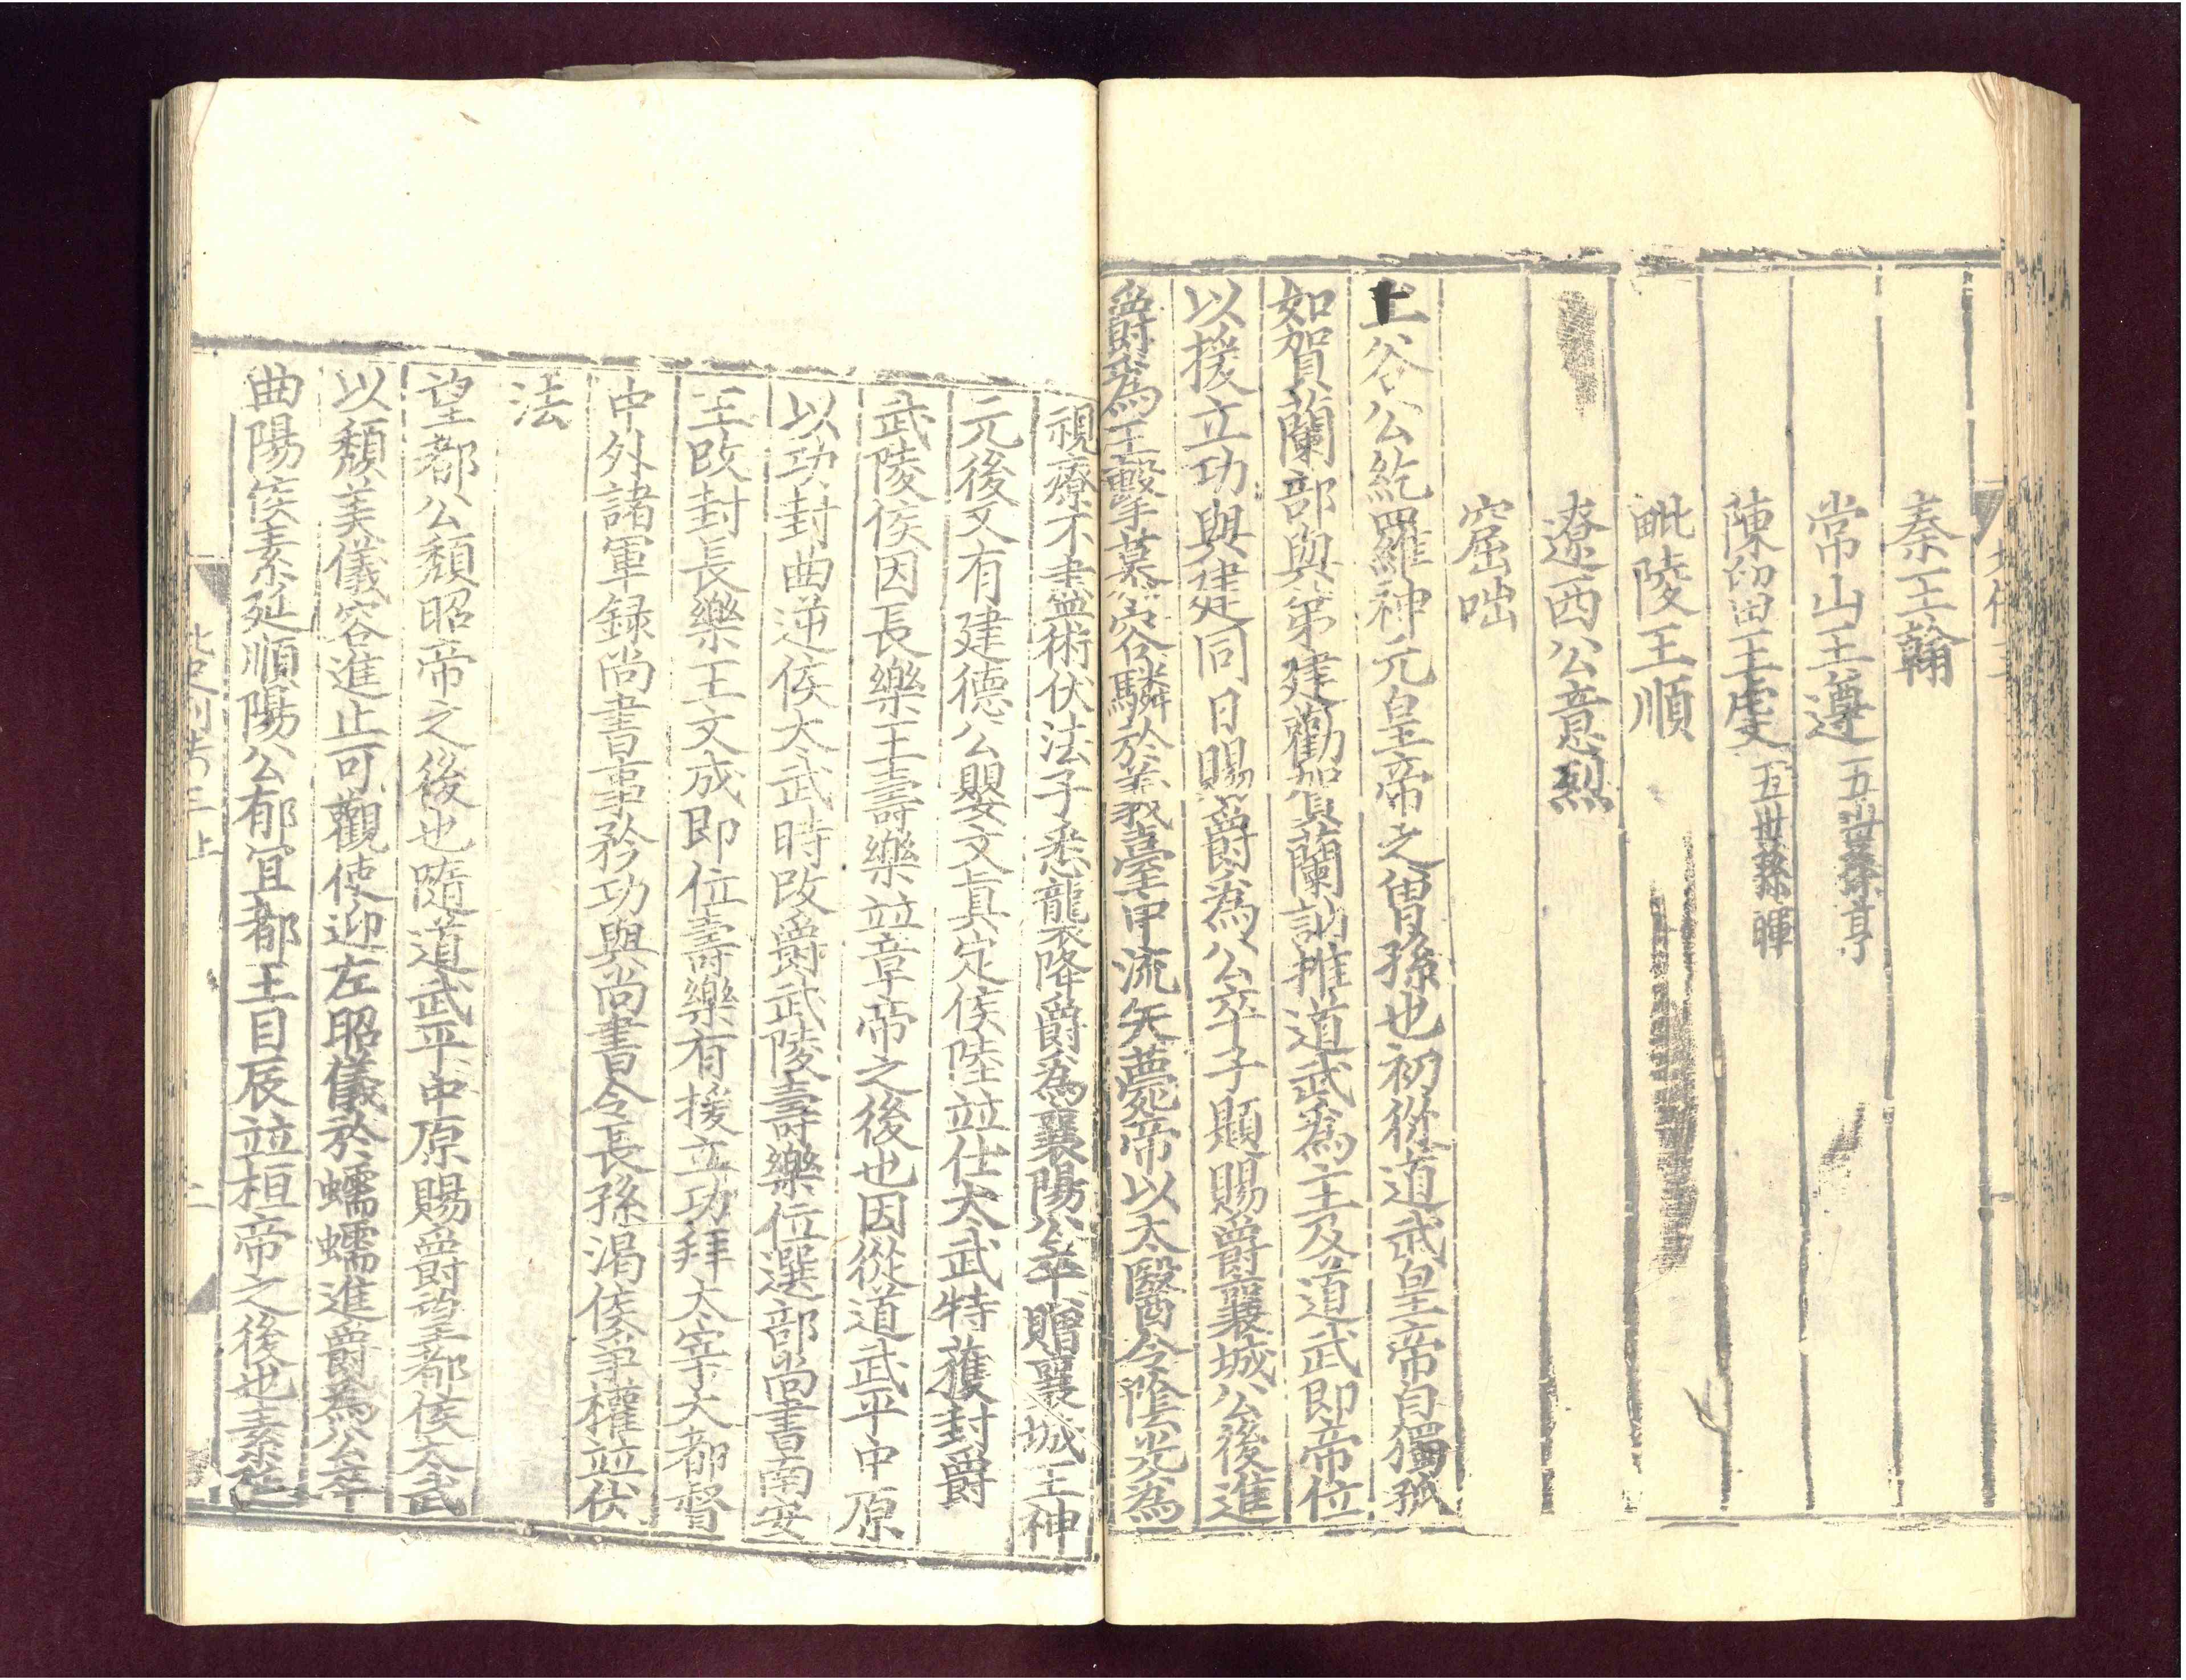 秦王翰
常山王遵 五世孫亨
陳留王虔 五世孫暉
毗陵王順
遼西公意烈
窟咄
上谷公紇羅神元皇帝之曾孫也初從道武皇帝自獨孤
如賀蘭部與弟建勸賀蘭訥推道武爲主及道武即帝位
以援立功與建同日賜爵為公卒子題賜爵襄城公後進
爵爲王擊慕容驎於義臺中流矢薨帝以太醫令陰光為
視療不盡術伏法子悉龍襲降爵爲襄陽公卒贈襄城王神
元後又有建德公嬰文真定侯陸並仕太武特獲封爵
武陵侯因長樂王壽樂並章帝之後也因從道武平中原
以功封曲逆侯太武時改爵武陵壽樂位選部尚書南安
王改封長樂王文成即位壽樂有援立功拜太宰大都督
中外諸軍録尚書事矜功與尚書令長孫渴侯爭權並伏
法
望都公頹昭帝之後也隨道武平中原賜爵望都侯太武
以頹美儀容進止可觀使迎左昭儀於蠕蠕進爵為公卒
曲陽侯素延順陽公郁宜都王目辰並桓帝之後也素延
北史列傳三上 二